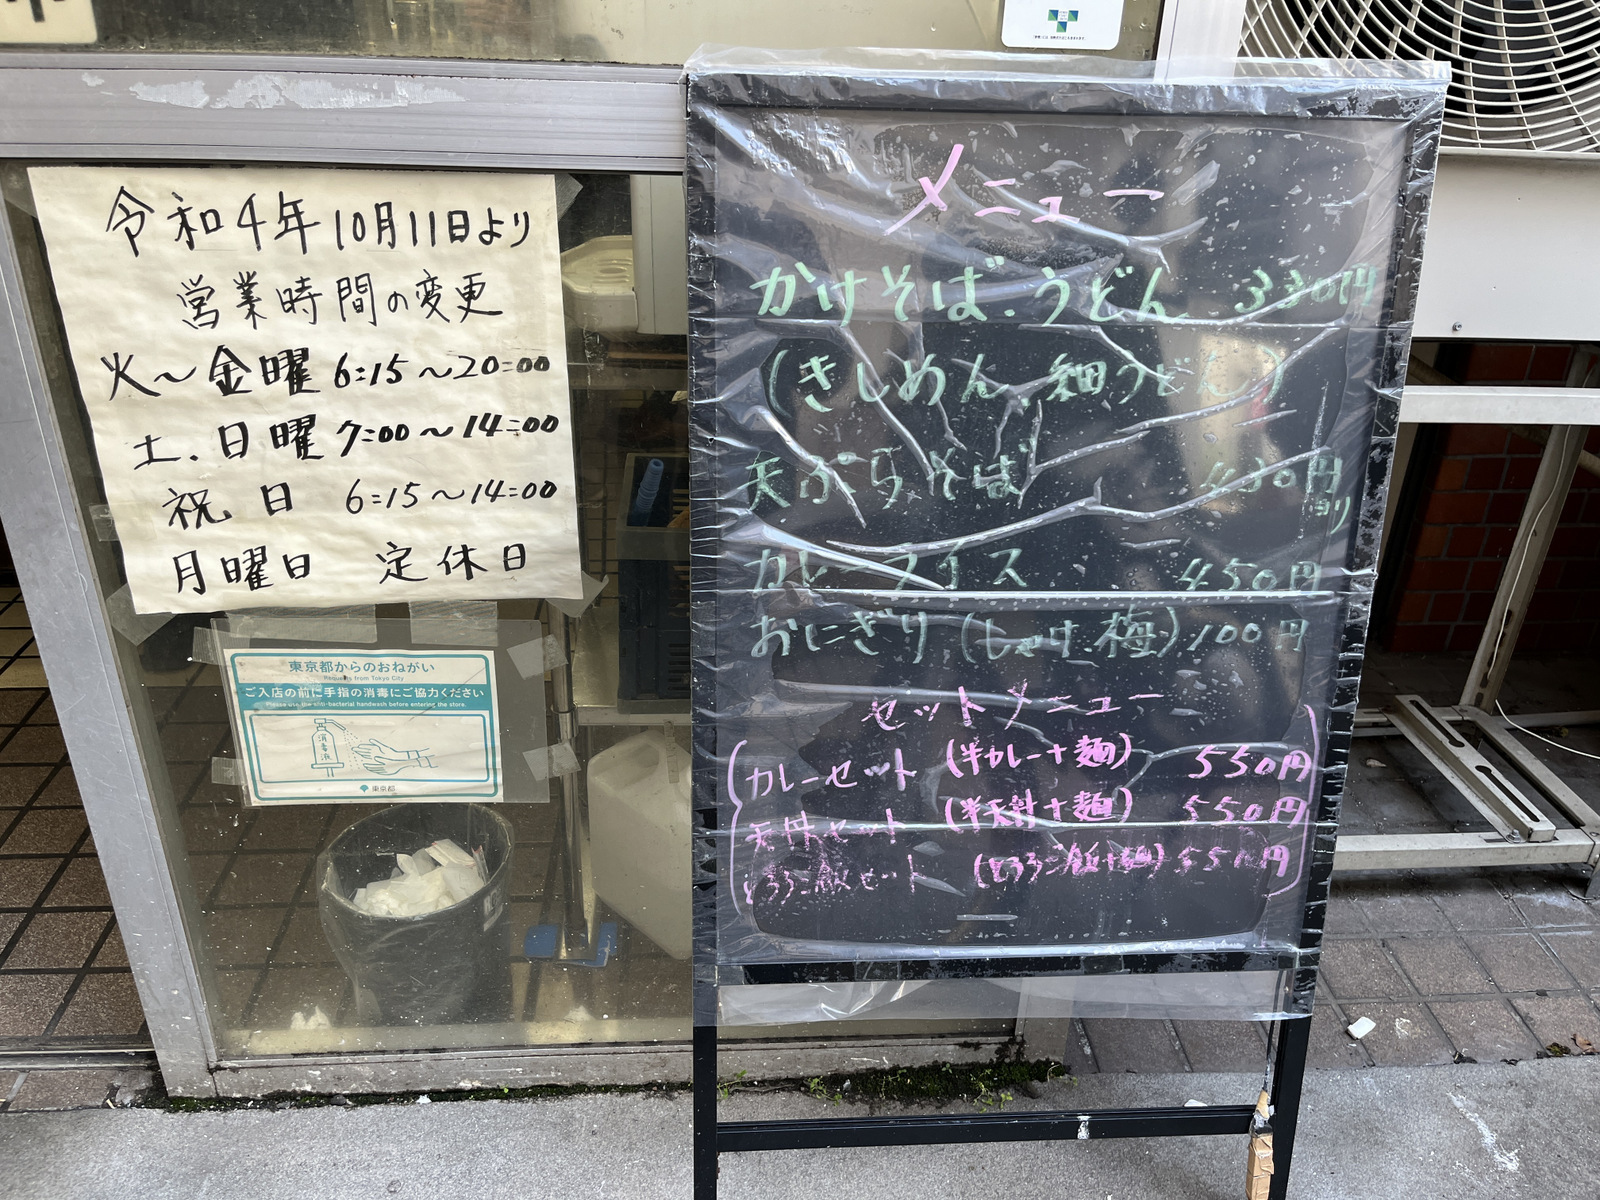 令和4年10月11日より
営業時間の変更
火～金曜 6:15～20:00
土.日曜 7:00～14:00
祝日 6:15～14:00
月曜日 定休日
東京都からのおねがい
Requests from Tokyo City
ご入店の前に手指の消毒にご協力ください
Please use the anti-bacterial handwash before entering the store.
消毒液
東京都
メニュー
かけそば.うどん 330円
(きしめん、細うどん)
天ぷらそば 430円
より
カレーライス 450円
おにぎり(しゃけ.梅)100円
セットメニュー
カレーセット (半カレー+麺) 550円
天丼セット (半天丼+麺) 550円
とろろご飯セット (とろろご飯+麺) 550円